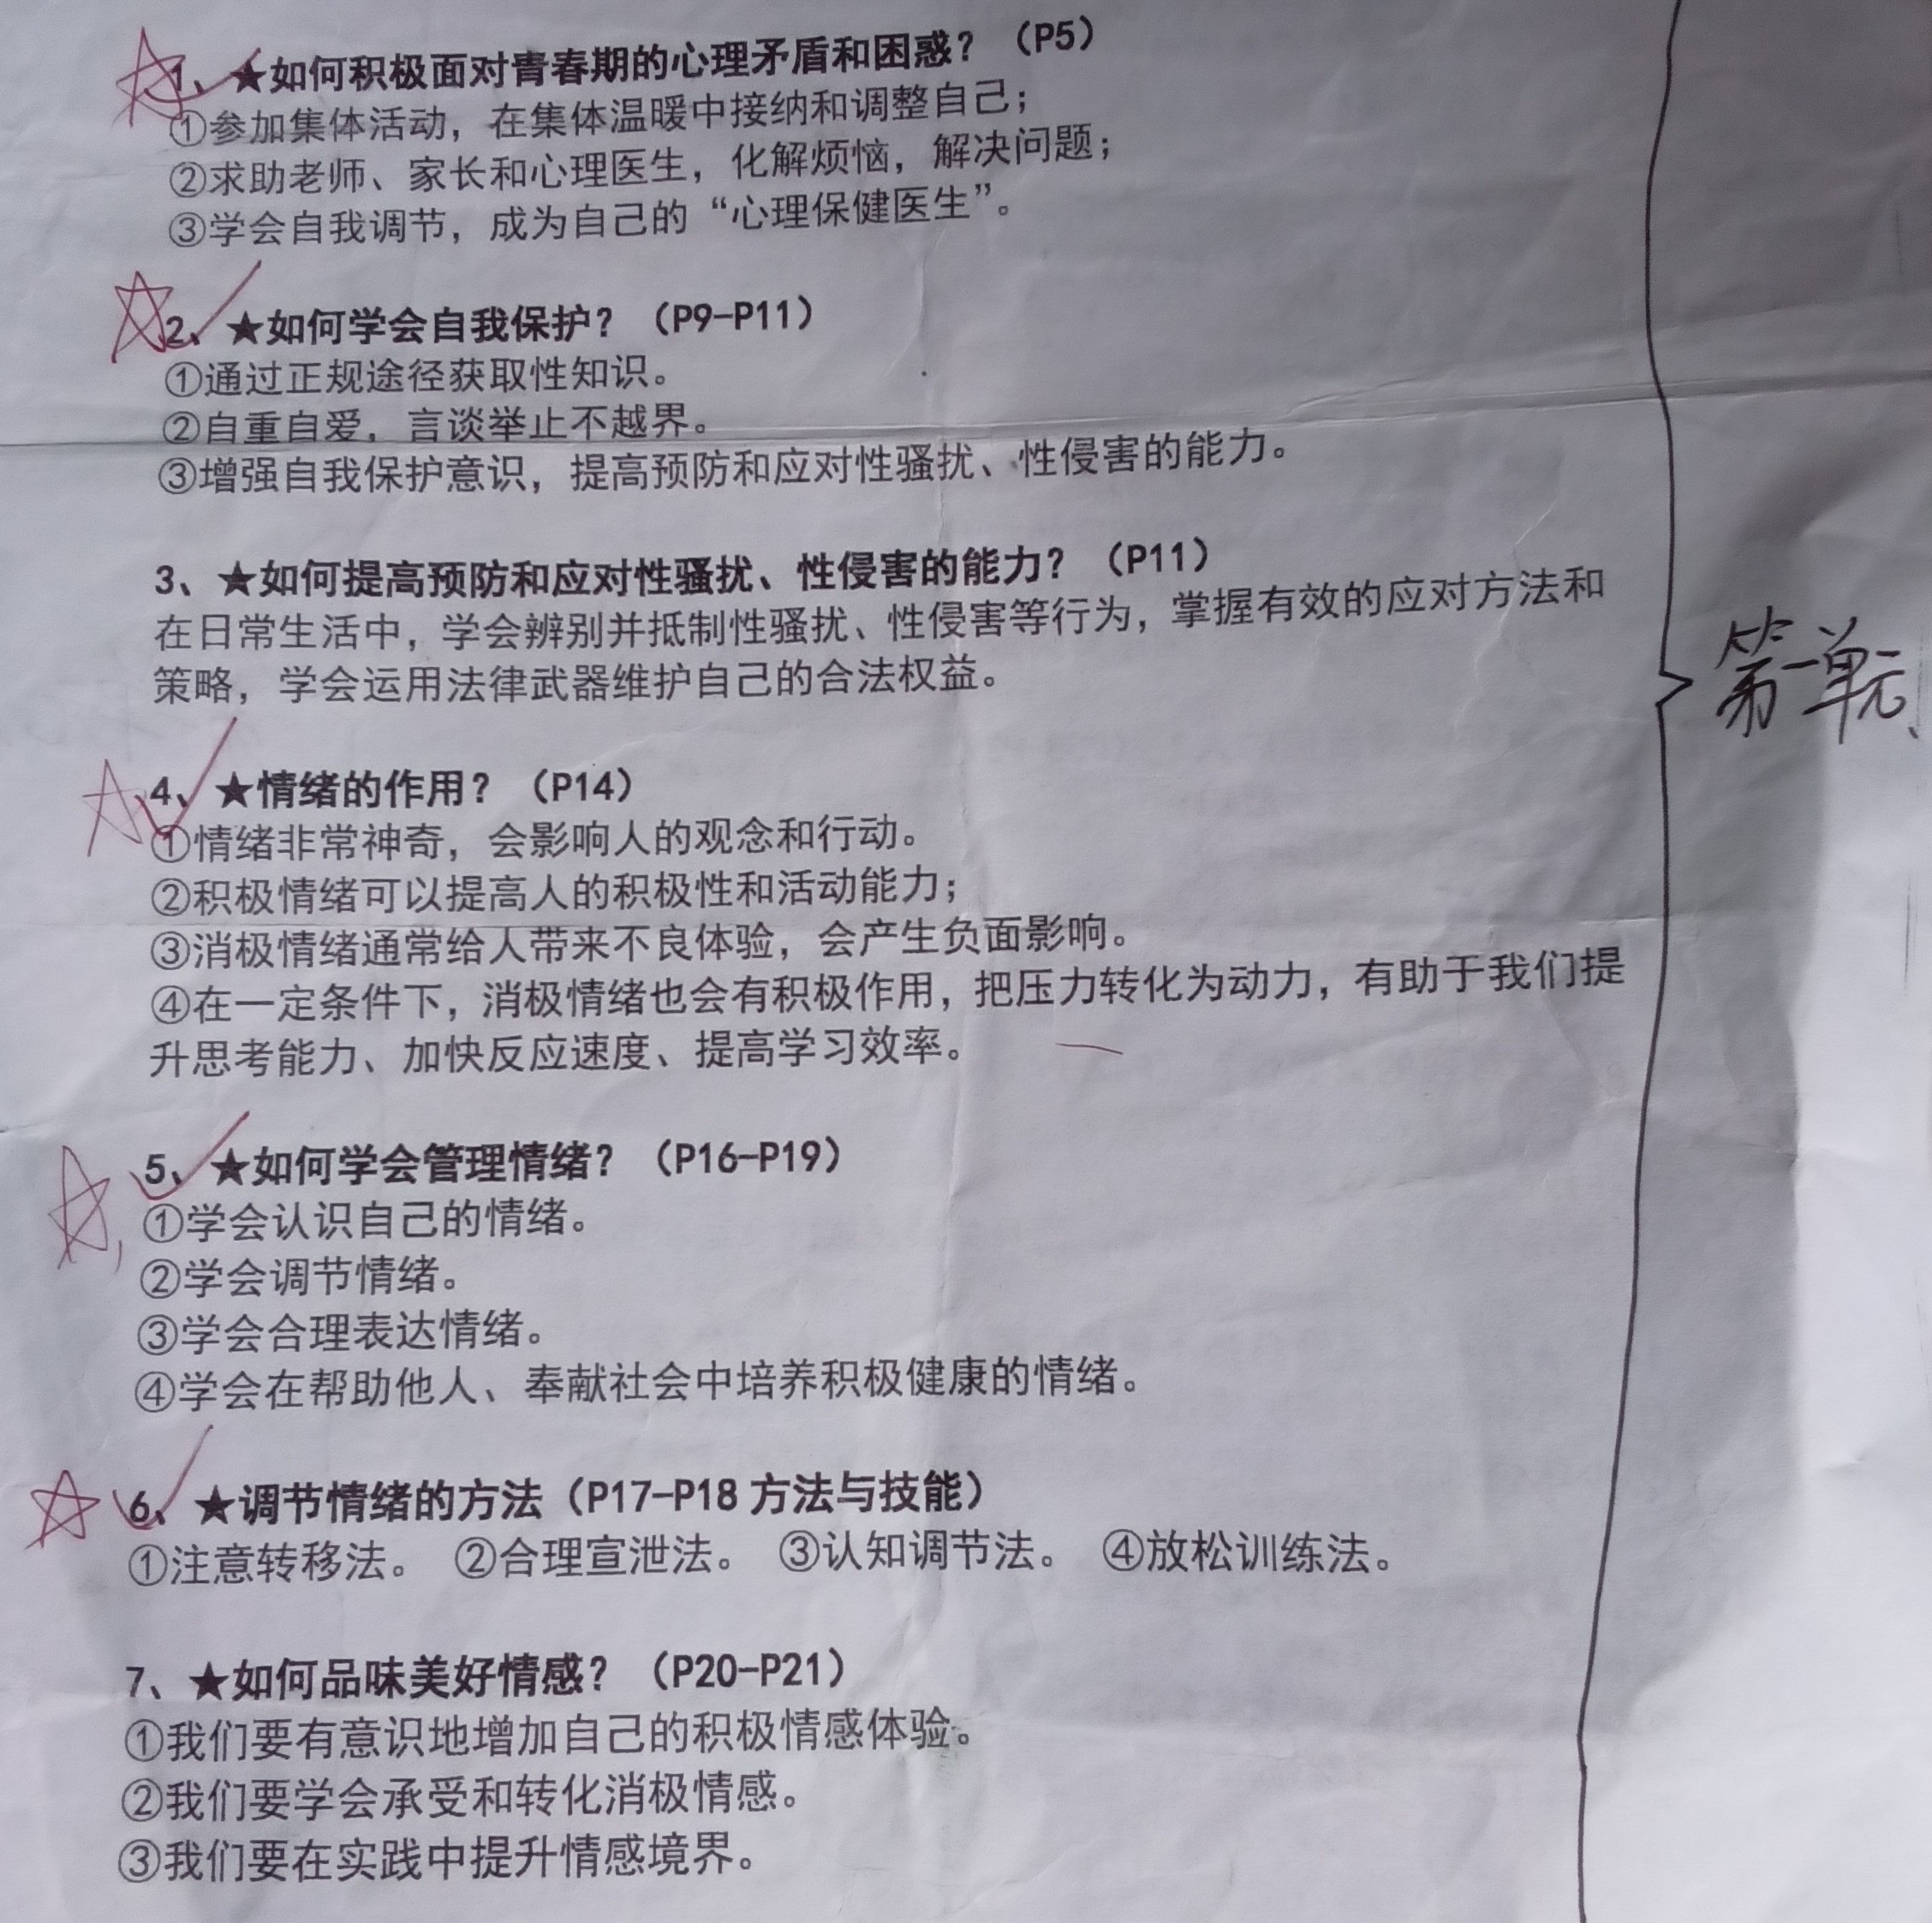 1、★如何积极面对青春期的心理矛盾和困惑？（P5）
①参加集体活动，在集体温暖中接纳和调整自己；
②求助老师、家长和心理医生，化解烦恼，解决问题；
③学会自我调节，成为自己的“心理保健医生”。
2、★如何学会自我保护？（P9-P11）
①通过正规途径获取性知识。
②自重自爱，言谈举止不越界。
③增强自我保护意识，提高预防和应对性骚扰、性侵害的能力。
3、★如何提高预防和应对性骚扰、性侵害的能力？（P11）
在日常生活中，学会辨别并抵制性骚扰、性侵害等行为，掌握有效的应对方法和
策略，学会运用法律武器维护自己的合法权益。
第一单元
4、★情绪的作用？（P14）
①情绪非常神奇，会影响人的观念和行动。
②积极情绪可以提高人的积极性和活动能力；
③消极情绪通常给人带来不良体验，会产生负面影响。
④在一定条件下，消极情绪也会有积极作用，把压力转化为动力，有助于我们提
升思考能力、加快反应速度、提高学习效率。
5、★如何学会管理情绪？（P16-P19）
①学会认识自己的情绪。
②学会调节情绪。
③学会合理表达情绪。
④学会在帮助他人、奉献社会中培养积极健康的情绪。
6、★调节情绪的方法（P17-P18 方法与技能）
①注意转移法。 ②合理宣泄法。 ③认知调节法。 ④放松训练法。
7、★如何品味美好情感？（P20-P21）
①我们要有意识地增加自己的积极情感体验。
②我们要学会承受和转化消极情感。
③我们要在实践中提升情感境界。